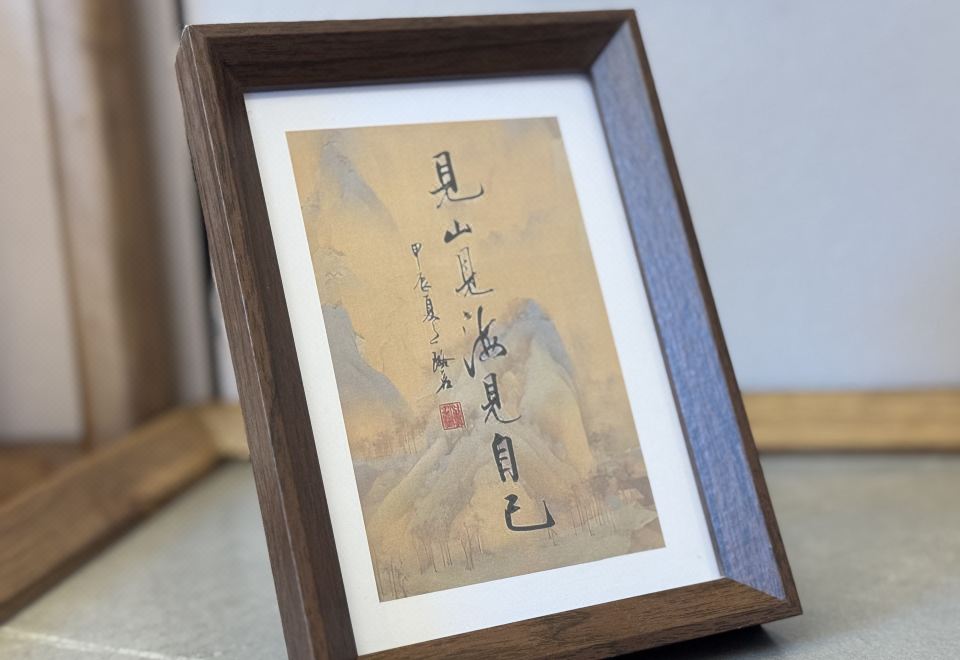 見山見海見自己
甲辰夏